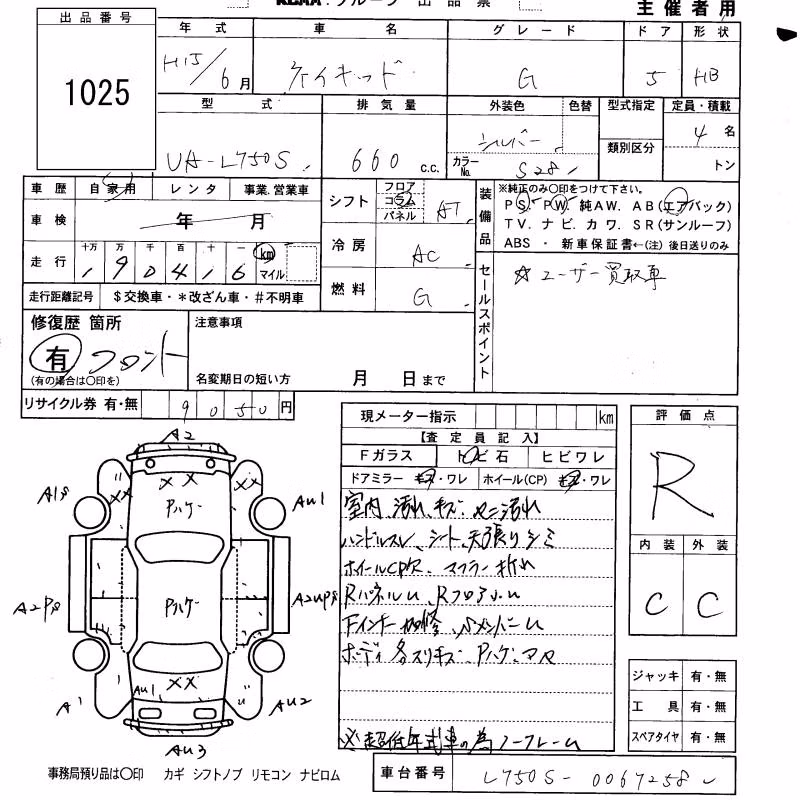 KCAA・グループ 出品票 主催者用
出品番号 年式 車名 グレード ドア 形状
1025 H15/6月 ネイキッド G 5 HB
型式 排気量 外装色 色替 型式指定 定員・積載
UA-L750S 660 c.c. シルバー カラーNo. S28 類別区分 4名 トン
車歴 自家用 レンタ 事業.営業車
車検 年 月
走行 十万 万 千 百 十 一
1 9 0 4 1 6 km マイル
走行距離記号 $交換車・*改ざん車・#不明車
シフト フロア コラム パネル AT
冷房 AC
燃料 G
装備品 ※純正のみ〇印をつけて下さい。
PS. PW. 純AW. AB(エアバック)
TV. ナビ. カワ. SR(サンルーフ)
ABS ・ 新車保証書←(注) 後日送りのみ
セールスポイント ☆ユーザー買取車
修復歴 箇所
有 フロント
(有の場合は〇印を)
注意事項
名変期日の短い方 月 日まで
リサイクル券 有・無 9050円
現メーター指示 km
【査定員記入】
Fガラス トビ石 ヒビワレ
ドアミラー キズ・ワレ ホイール(CP) キズ・ワレ
室内、汚れ、キズ、セニ汚れ
ハンドルスレ、シート、天張りシミ
ホイールCP欠、マフラー折れ
RパネルU、RフロアU
Fインナー 加修、SメンバーU
ボディ 各スリキズ、Pハゲ、マス
※超低年式車の為ノークレーム
評価点
R
内装 外装
C C
ジャッキ 有・無
工具 有・無
スペアタイヤ 有・無
A2
A1S
××
××
××
Pハゲ
AU1
A2PS
Pハゲ
A2UPS
AU1
××
A1
AU2
AU3
事務局預り品は〇印 カギ シフトノブ リモコン ナビロム
車台番号 L750S-0067258